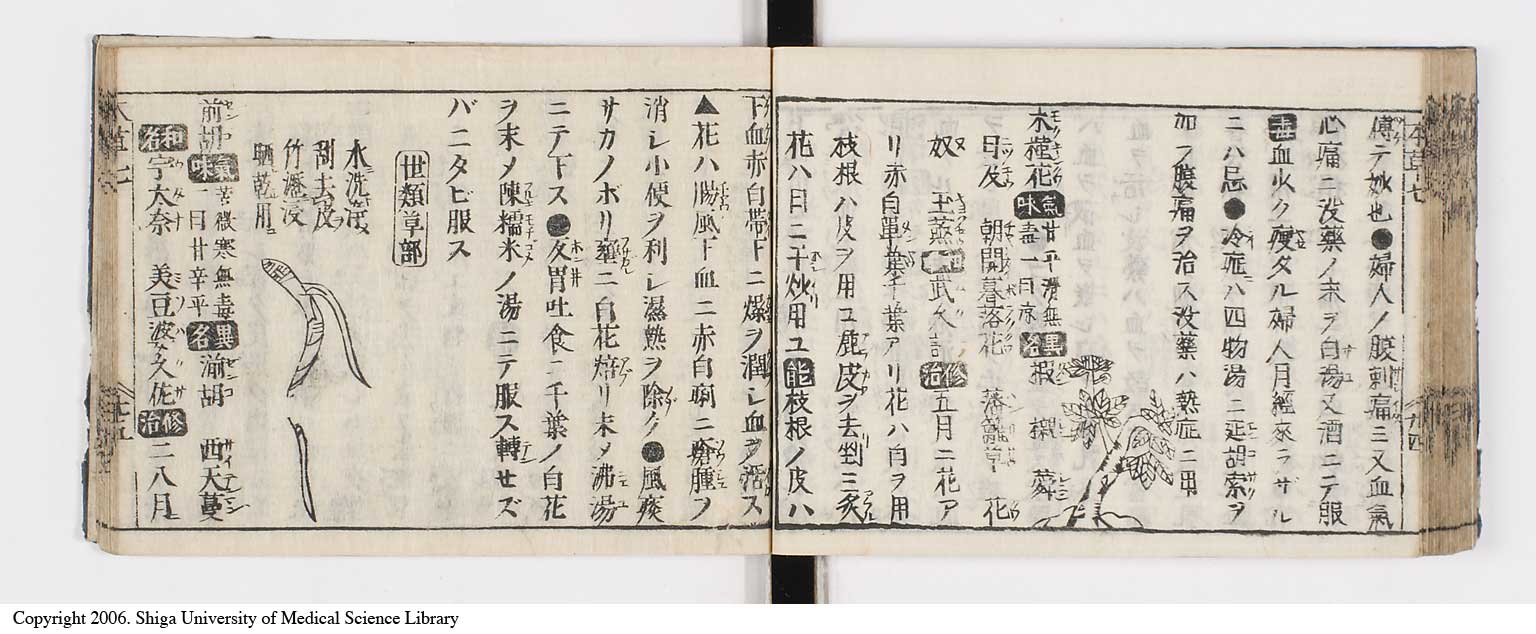 傅テ妙也●婦人ノ腹刺痛ニ又血氣
心痛ニ没藥ノ末ヲ白湯又酒ニテ服
毒血火ク瘦タル婦人月經來ラザル
ニハ忌●冷症ハ四物湯ニ延胡索ヲ
加フ腹痛ヲ治ス没藥ハ熱症ニ用
木槿花 氣味 甘平滑無毒一日凉 異名 椵 櫬 蕣
日及 朝開暮落花 藩籬草 花
奴 玉蒸 修治 五月ニ花ア
リ赤白單葉千葉アリ花ハ白ヲ用
枝根ハ皮ヲ用ユ麁皮ヲ去剉ミ炙
花ハ日ニ干炒用ユ 能 枝根ノ皮ハ
下血赤白帶下ニ燥ヲ潤シ血ヲ活ス
▲花ハ腸風下血ニ赤白痢ニ瘡腫ヲ
消シ小便ヲ利シ濕熱ヲ除ク●風痰
サカノボリ壅ニ白花焙リ末メ沸湯
ニテ下ス●反胃吐食ニ千葉ノ白花
ヲ末メ陳糯米ノ湯ニテ服ス轉セズ
バニタビ服ス
世類草部
水洗浸
刮去皮
竹瀝浸
晒乾用
前胡 氣味 苦微寒無毒一曰甘辛平 異名 湔胡 西天蔓
和名 宇太奈 美豆波久佐 修治 二八月
Copyright 2006. Shiga University of Medical Science Library